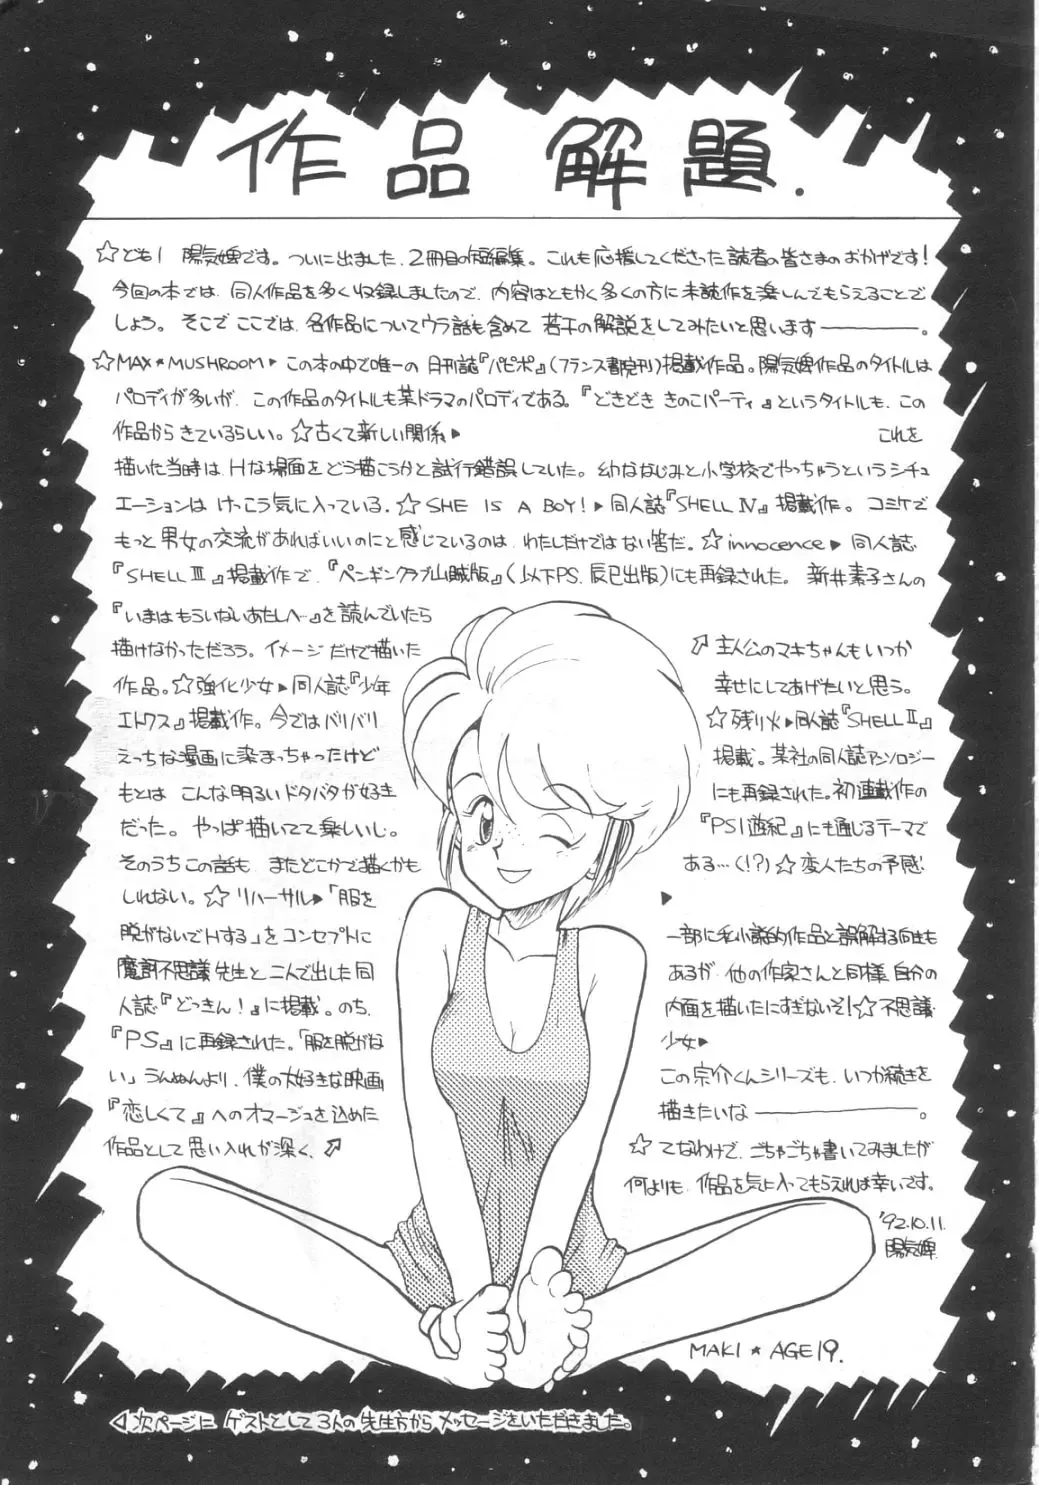 作品解題.
☆ども! 陽気婢です。ついに出ました、2冊目の短編集。これも応援してくださった読者の皆さまのおかげです!
今回の本では、同人作品を多く収録しましたので、内容はともかく多くの方に未読作を楽しんでもらえることで
しょう。そこでここでは、各作品についてウラ話も含めて若干の解説をしてみたいと思います――――。
☆MAX★MUSHROOM▶この本の中で唯一の月刊誌『パピポ』(フランス書院刊)掲載作品。陽気婢作品のタイトルは
パロディが多いが、この作品のタイトルも某ドラマのパロディである。『どきどききのこパーティ』というタイトルも、この
作品からきているらしい。☆古くて新しい関係▶ これを
描いた当時は、Hな場面をどう描こうかと試行錯誤していた。幼ななじみと小学校でやっちゃうというシチュ
エーションは けっこう気に入っている。☆SHE IS A BOY!▶同人誌『SHELL Ⅳ』掲載作。コミケで
もっと男女の交流があればいいのにと感じているのは、わたしだけではない筈だ。☆innocence▶同人誌
『SHELL Ⅲ』掲載作で、『ペンギンクラブ山賊版』(以下PS、辰巳出版)にも再録された。新井素子さんの
『いまはもういないあたしへ…』を読んでいたら
描けなかっただろう。イメージだけで描いた
作品。☆強化少女▶同人誌『少年
エトワス』掲載作。今ではバリバリ
えっちな漫画に染まっちゃったけど
もとは こんな明るいドタバタが好き
だった。やっぱ描いてて楽しいし。
そのうちこの話も またどこかで描くかも
しれない。☆リハーサル▶「服を
脱がないでHする」をコンセプトに
魔訶不思議先生と二人で出した同
人誌『どっきん!』に掲載。のち、
『PS』に再録された。「服を脱がな
い」うんぬんより、僕の大好きな映画
『恋しくて』へのオマージュを込めた
作品として思い入れが深く、↗
↗主人公のマキちゃんもいつか
幸せにしてあげたいと思う。
☆残り火▶同人誌『SHELL Ⅱ』
掲載。某社の同人誌アンソロジー
にも再録された。初連載作の
『PSI遊紀』にも通じるテーマで
ある…(!?)☆変人たちの予感
▶
一部に私小説的作品と誤解する向きも
あるが、他の作家さんと同様、自分の
内面を描いたにすぎないぞ!☆不思議
少女▶
この宗介くんシリーズも、いつか続きを
描きたいな――――。
☆てなわけで、ごちゃごちゃ書いてみましたが
何よりも、作品を気に入ってもらえれば幸いです。
'92.10.11.
陽気婢
MAKI★AGE19.
◁次ページに ゲストとして3人の先生方からメッセージをいただきました。